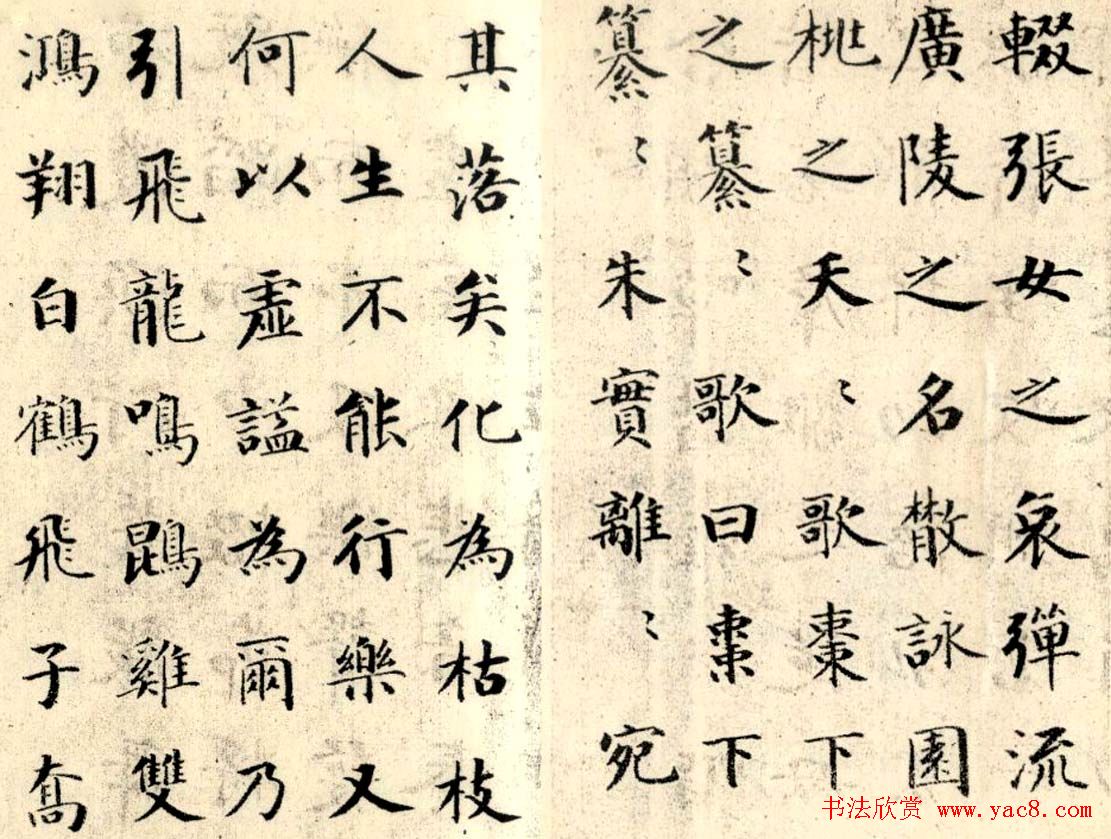 輟張女之哀彈流
廣陵之名散詠園
桃之夭〻歌棗下
之纂〻歌曰棗下
纂〻朱實離〻宛
其落矣化為枯枝
人生不能行樂又
何以虛謚為爾乃
引飛龍鳴鵾雞雙
鴻翔白鶴飛子喬
书法欣赏 www.yac8.com